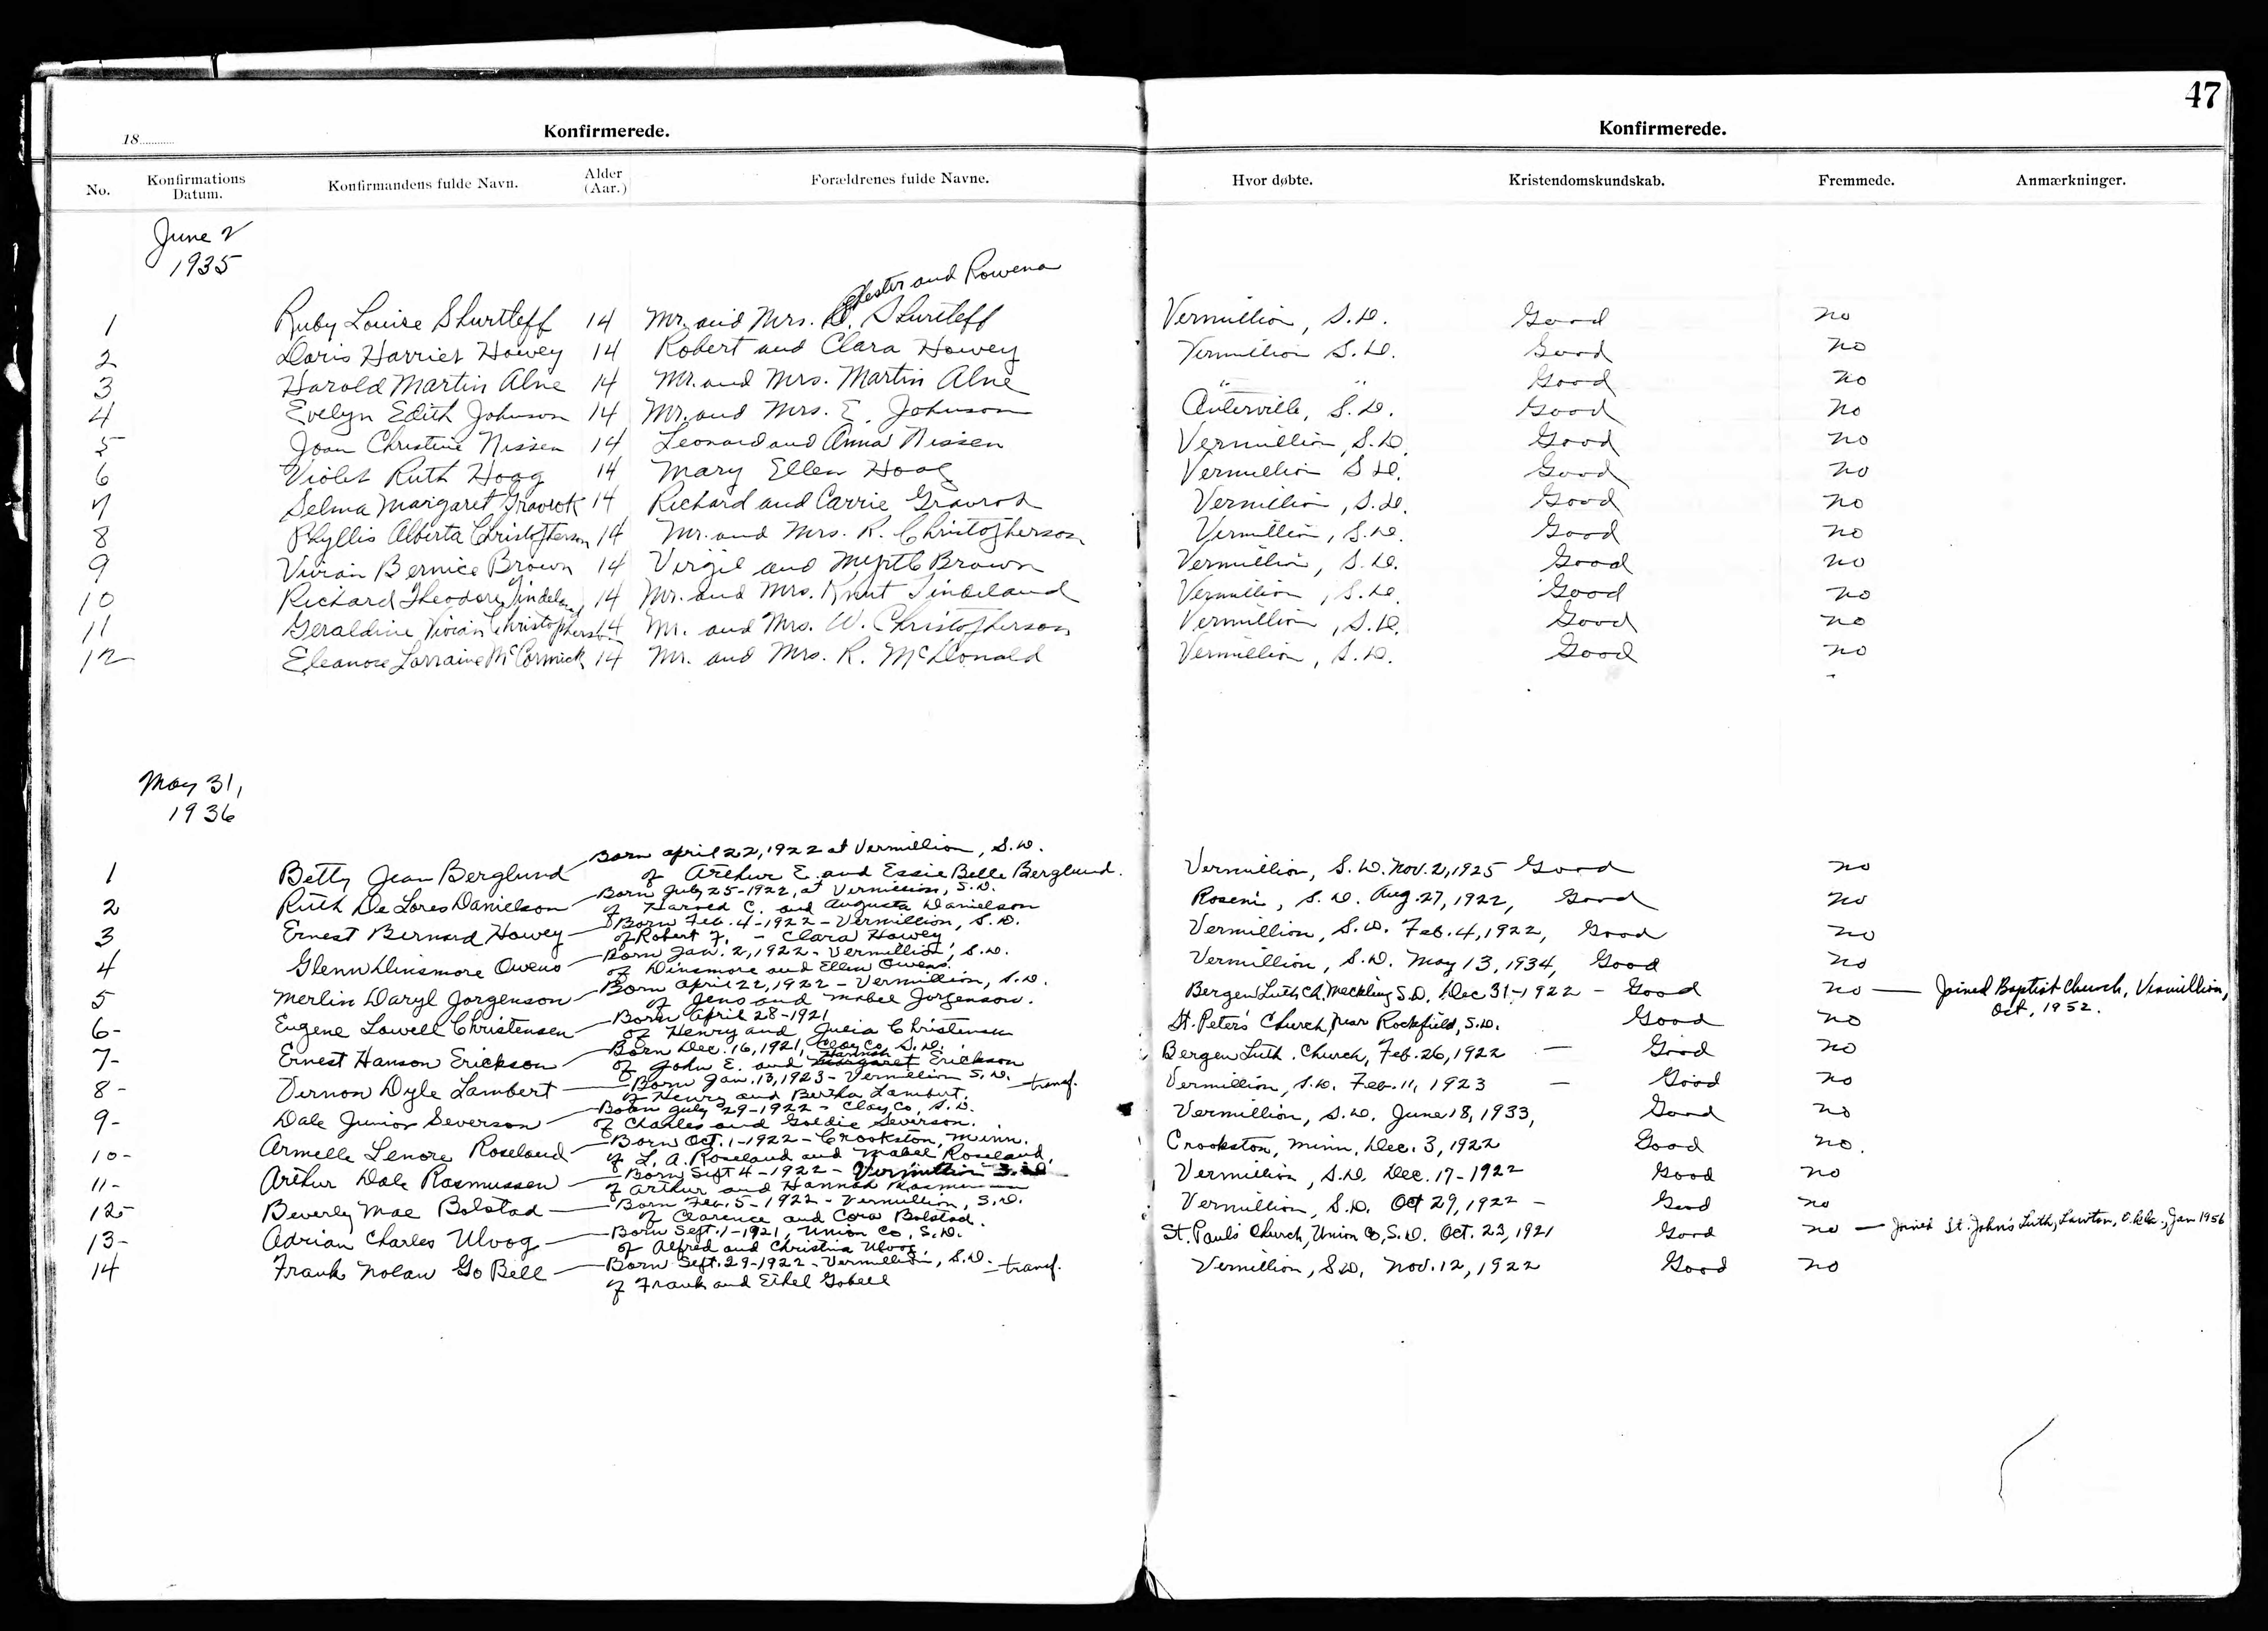 47
18............ Konfirmerede. Konfirmerede.
No. Konfirmations Datum. Konfirmandens fulde Navn. Alder (Aar.) Forældrenes fulde Navne. Hvor døbte. Kristendomskundskab. Fremmede. Anmærkninger.
June 2
1935
Chester and Rowena
1 Ruby Louise Shurtleff 14 Mr. and Mrs. Shurtleff Vermillion, S.D. Good no
2 Doris Harriet Howey 14 Robert and Clara Howey Vermillion S.D. Good no
3 Harold Martin Alne 14 Mr. and Mrs. Martin Alne " " Good no
4 Evelyn Edith Johnson 14 Mr. and Mrs. E. Johnson Centerville, S.D. Good no
5 Joan Christine Nissen 14 Leonard and Anna Nissen Vermillion, S.D. Good no
6 Violet Ruth Hoag 14 Mary Ellen Hoag Vermillion S.D. Good no
7 Selma Margaret 14 Richard and Carrie Vermillion, S.D. Good no
8 Phyllis Alberta Christopherson 14 Mr. and Mrs. R. Christopherson Vermillion, S.D. Good no
9 Vivian Bernice Brown 14 Virgil and Myrtle Brown Vermillion, S.D. Good no
10 Richard Theodore Tindeland 14 Mr. and Mrs. Knut Tindeland Vermillion, S.D. Good no
11 Geraldine Vivian Christopherson 14 Mr. and Mrs. W. Christopherson Vermillion, S.D. Good no
12 Eleanore Lorraine McCormick 14 Mr. and Mrs. R. McDonald Vermillion, S.D. Good no
May 31,
1936
Born April 22, 1922 at Vermillion, S.D.
1 Betty Jean Berglund of Arthur E. and Essie Belle Berglund. Vermillion, S.D. Nov. 2, 1925 Good no
Born July 25-1922, at Vermillion, S.D.
2 Ruth De Lores Danielson of Harold C. and Augusta Danielson Roseni, S.D. Aug. 27, 1922, Good no
Born Feb. 4-1922 - Vermillion, S.D.
3 Ernest Bernard Howey of Robert F. - Clara Howey Vermillion, S.D. Feb. 4, 1922, Good no
Born Jan. 2, 1922 - Vermillion, S.D.
4 Glenn Dinsmore Owens of Dinsmore and Ellen Owens. Vermillion, S.D. May 13, 1934, Good no
Born April 22, 1922 - Vermillion, S.D.
5 Merlin Daryl Jorgenson of Jens and Mabel Jorgenson. Bergen Luth Ch. Meckling S.D. Dec 31-1922 - Good no — Joined Baptist Church, Vermillion,
Oct, 1952.
Born April 28-1921
6- Eugene Lowell Christensen of Henry and Julia Christensen St. Peter's Church, near Rockfield, S.D. Good no
Born Dec. 16, 1921, Clay Co, S.D.
7- Ernest Hanson Erickson of John E. and Hannah Margaret Erickson Bergen Luth. Church, Feb. 26, 1922 — Good no
Born Jan. 13, 1923 - Vermillion S.D.
8- Vernon Dyle Lambert of Henry and Bertha Lambert. — transf. Vermillion, S.D. Feb. 11, 1923 — Good no
Born July 29-1922 - Clay Co, S.D.
9- Dale Junior Severson of Charles and Goldie Severson. Vermillion, S.D. June 18, 1933, Good no
Born Oct. 1-1922 - Crookston, Minn.
10- Armelle Lenore Roseland of L. A. Roseland and Mabel Roseland. Crookston, Minn, Dec. 3, 1922 Good no.
Born Sept 4-1922 - Vermillion S.D.
11- Arthur Dale Rasmussen of Arthur and Hannah Rasmussen Vermillion, S.D. Dec. 17-1922 Good no
Born Feb. 5-1922 - Vermillion, S.D.
12- Beverly Mae Bolstad of Clarence and Cora Bolstad. Vermillion, S.D. Oct 29, 1922 - Good no
Born Sept. 1-1921, Union Co, S.D.
13- Adrian Charles Ulvog of Alfred and Christina Ulvog. St. Paul's Church, Union Co, S.D. Oct. 23, 1921 Good no — Joined St. John's Luth, Lawton, Okla., Jan 1956
Born Sept. 29-1922 - Vermillion, S.D.
14 Frank Nolan Go Bell of Frank and Ethel Gobell — transf. Vermillion, S.D. Nov. 12, 1922 Good no